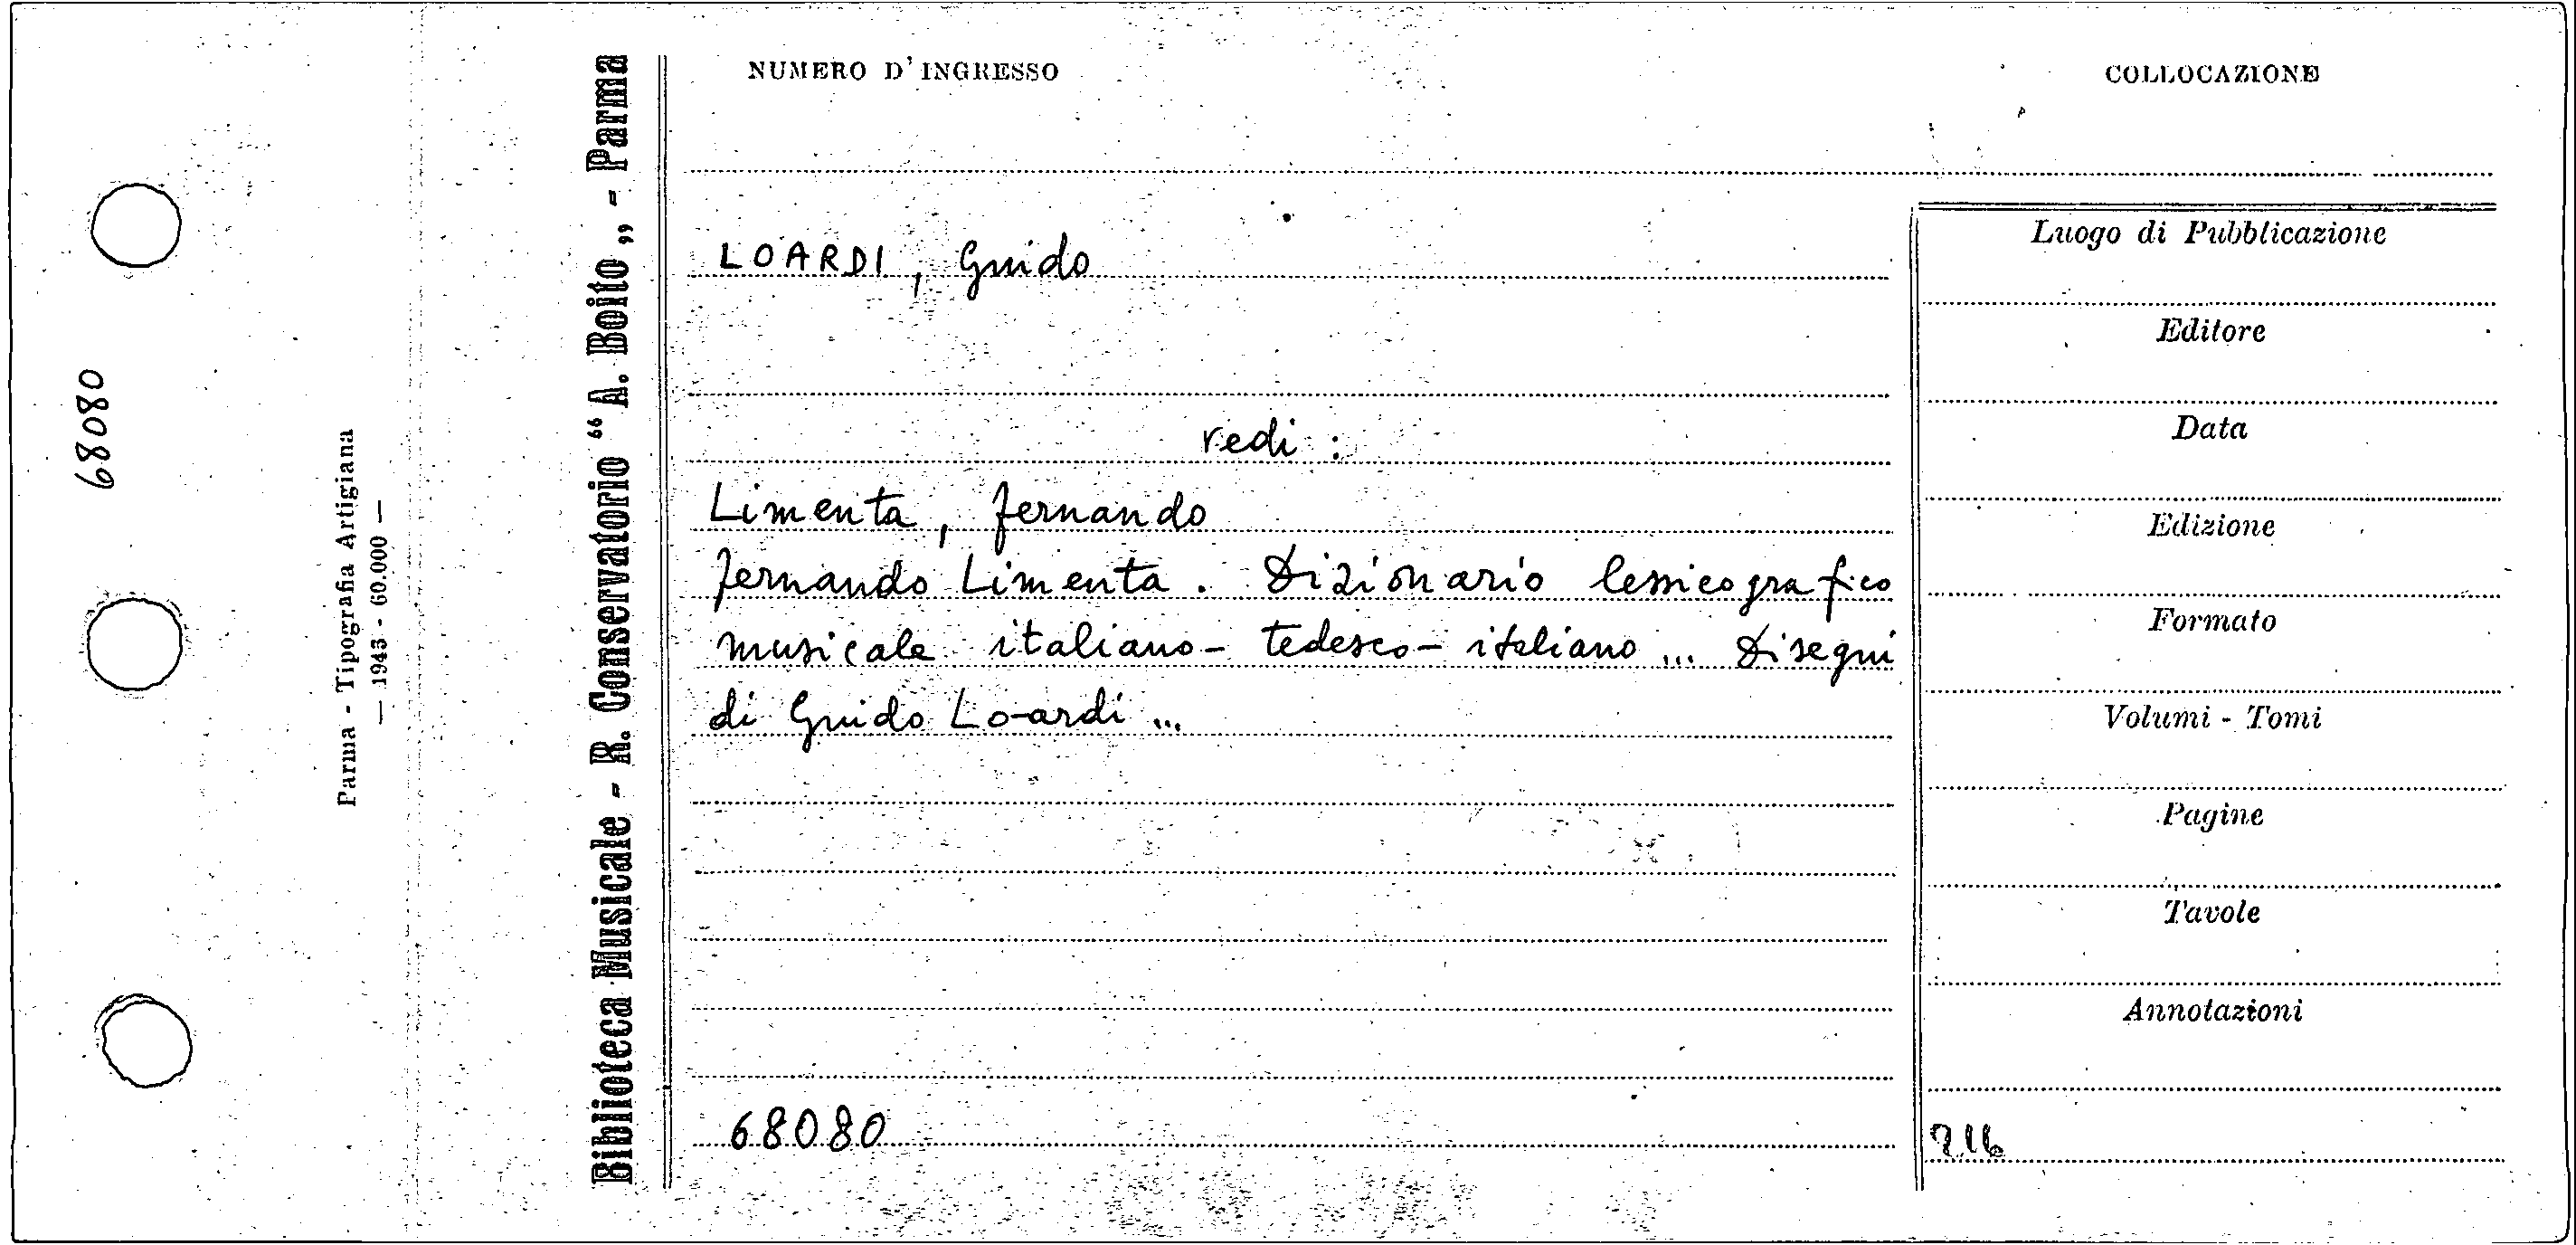 68080
Parma - Tipografia Artigiana
— 1943 - 60.000 —
Biblioteca Musicale - R. Conservatorio “A. Boito„ - Parma
NUMERO D'INGRESSO
COLLOCAZIONE
LOARDI, Guido
vedi :
Limenta, Fernando
Fernando Limenta. Dizionario lessicografico
musicale italiano - tedesco - italiano ... Disegni
di Guido Loardi ...
68080
Luogo di Pubblicazione
Editore
Data
Edizione
Formato
Volumi - Tomi
Pagine
Tavole
Annotazioni